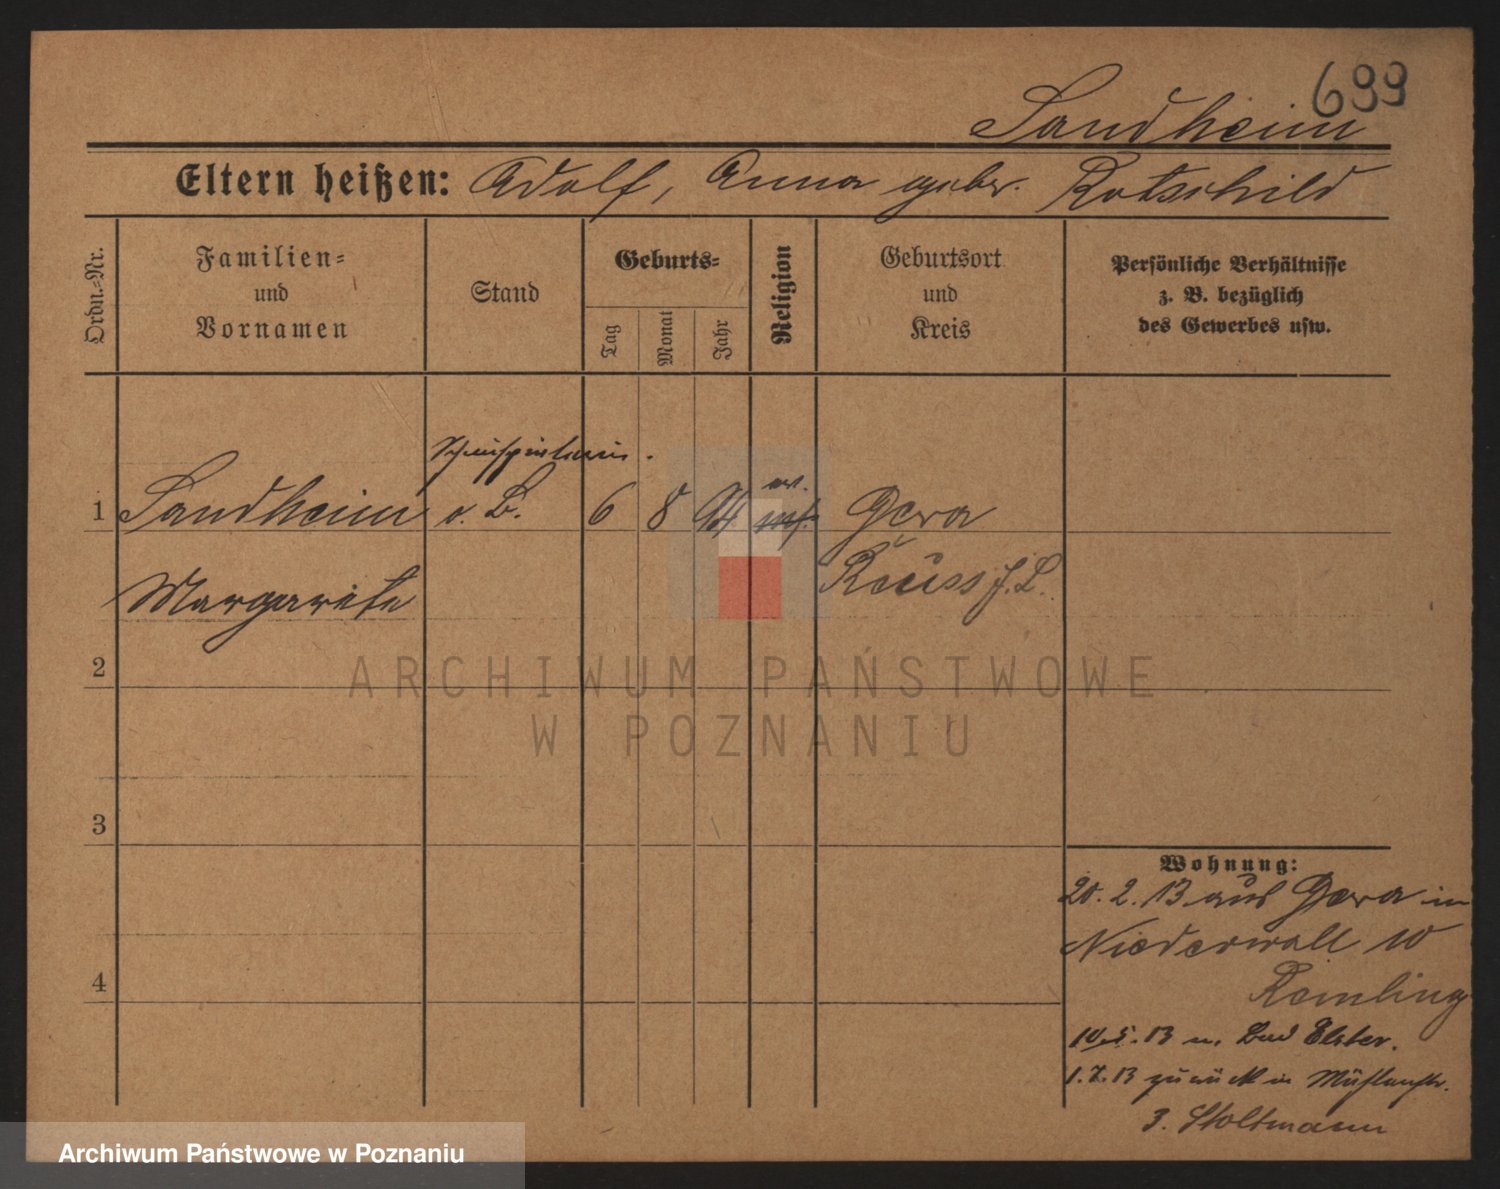 699
Sandheim
Eltern heißen: Adolf, Anna geber. Rotschild
Ordn.-Nr.
Familien-
und
Vornamen
Stand
Geburts-
Tag
Monat
Jahr
Religion
Geburtsort
und
Kreis
Persönliche Verhältnisse
z. B. bezüglich
des Gewerbes usw.
Schauspielerin.
1 Sandheim v. B. 6 8 94 Gera
Reuss j. L.
Margarete
2
3
4
Wohnung:
20. 2. 13 aus Gera in
Niederwall 10
Remling
10.5.13 n. Bad Elster.
1.7.13 zurück in Mühlenstr.
3. Stoltmann
ARCHIWUM PAŃSTWOWE
W POZNANIU
Archiwum Państwowe w Poznaniu